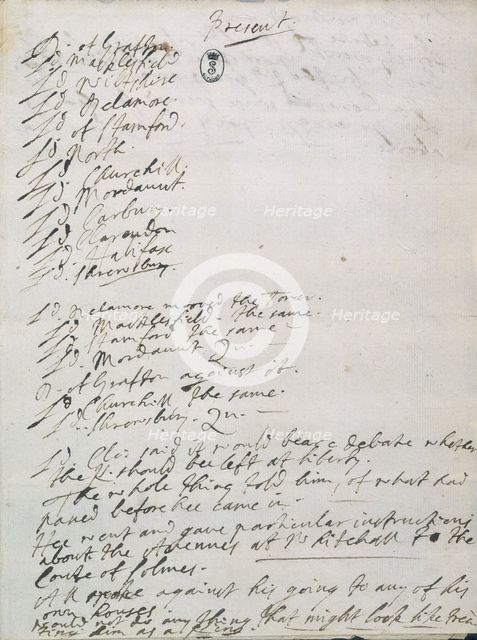 Present.
D. of Grafton.
Ld. Macklesfield
Ld. Wiltshire
Ld. Delamore.
Ld. of Stamford.
Ld. North.
Ld. Churchill.
Ld. Mordaunt.
Ld. Carbury.
Ld. Clarendon
Ld. Halifax
Ld. Shrewsbury.
Ld. Delamore moored the Tower.
Ld. Macklesfield the same.
Ld. Stamford the same
Ld. Mordaunt Qu.
D. of Grafton against it.
Ld. Churchill the same.
Ld. Shrewsbury. Qu.
Ld. Cla: said it would beare debate whether
the K. should bee left at liberty.
The whole thing told him, of what had
passed before hee came in.
Hee went and gave particular instructions
about the Avennues at Whitehall to the
Conte of Solmes.
All spoke against his going to any of his
own houses.
would not do any thing that might look like trea
ting him as a King.
Heritage
Heritage
Heritage
Heritage
Heritage
Heritage